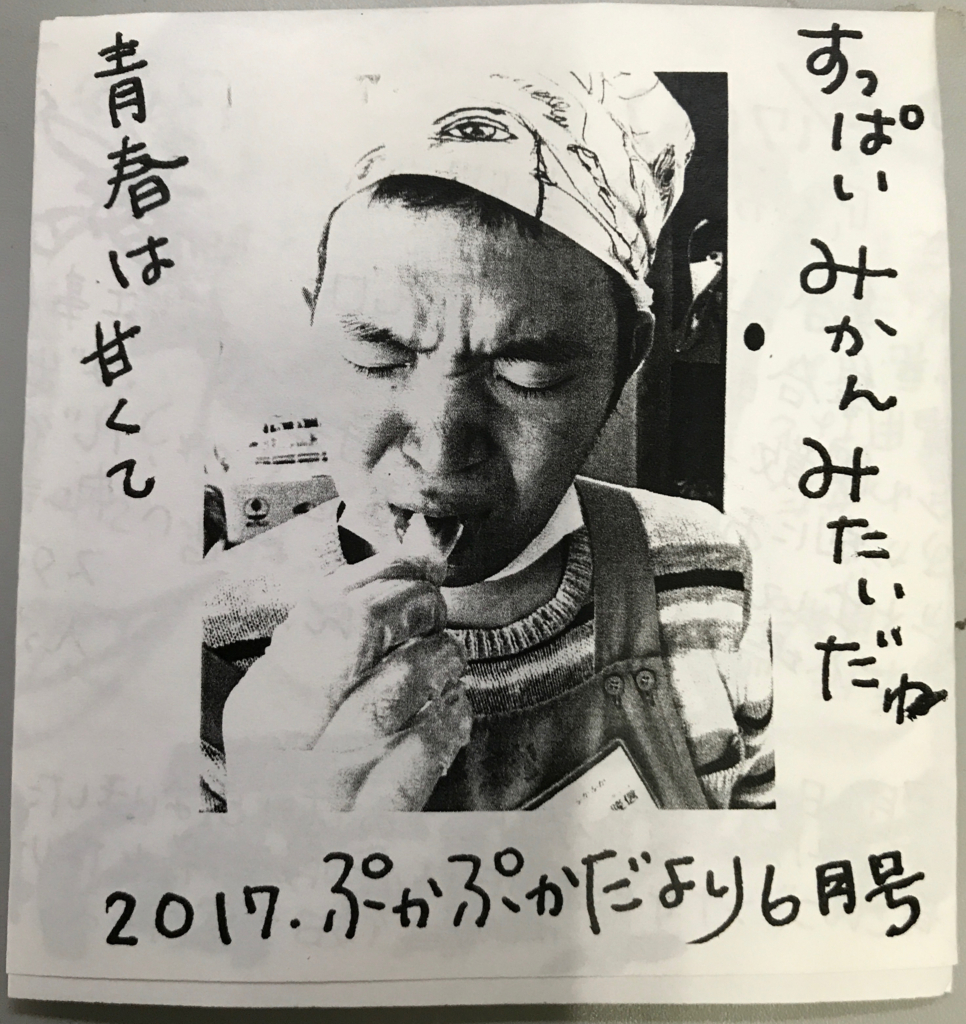 青春は甘くて
すっぱいみかんみたいだね
2017.ぷかぷかだより6月号